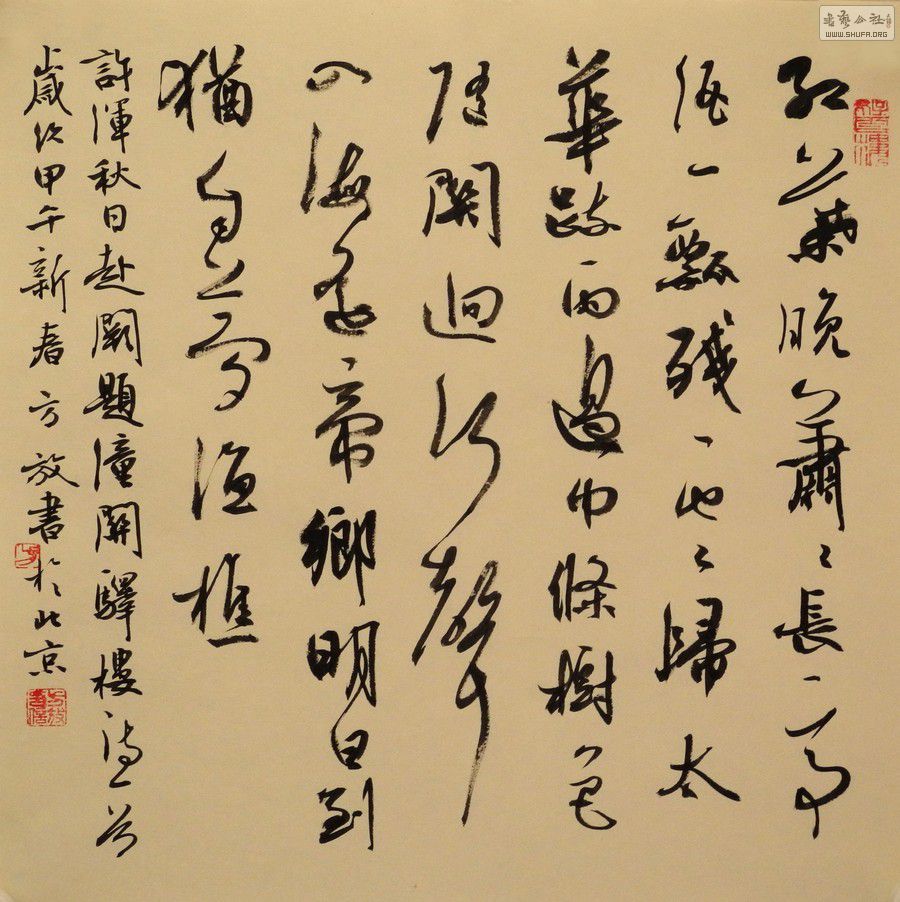 紅葉晚蕭々長亭
酒一瓢殘雲歸太
華疏雨過中條樹色
隨關迥河聲
入海遥帝鄉明日到
猶自夢漁樵
許渾秋日赴闕題潼關驛樓詩一首
歲次甲午新春方放書於北京
書藝公社
WWW.SHUFA.ORG